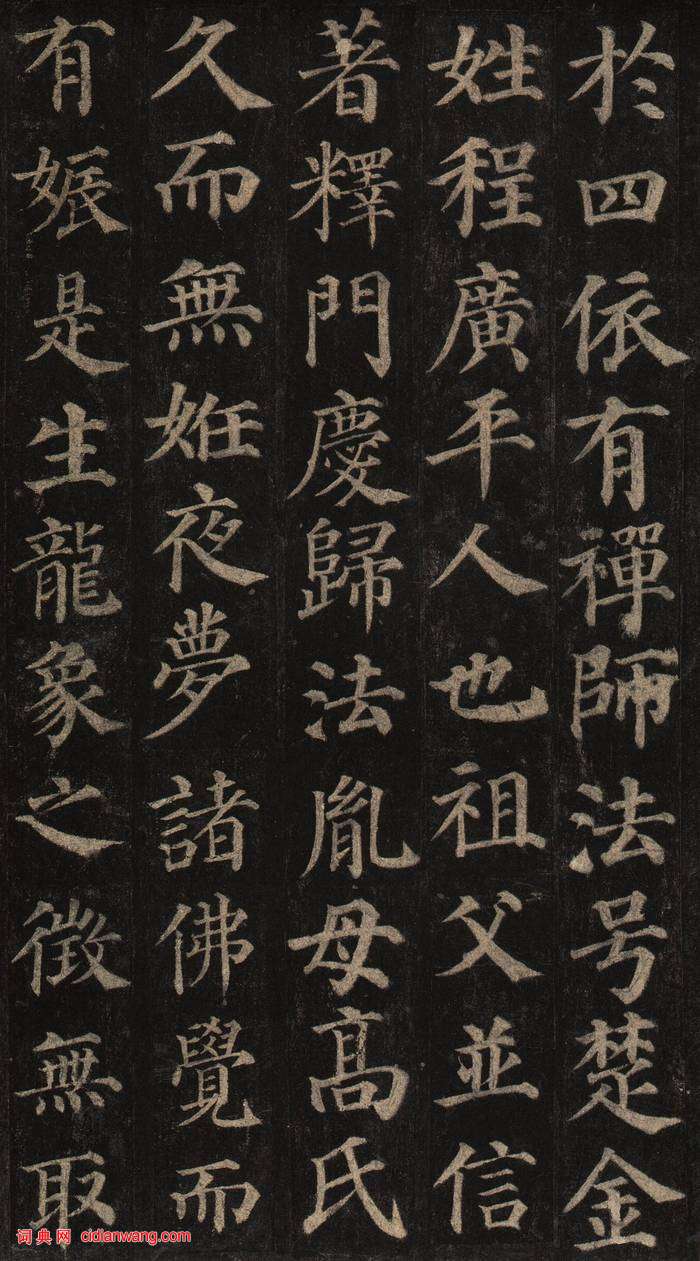 於四依有禪師法号楚金
姓程廣平人也祖父並信
著釋門慶歸法胤母高氏
久而無姙夜夢諸佛覺而
有娠是生龍象之徵無取
词典网 cidianwang.com